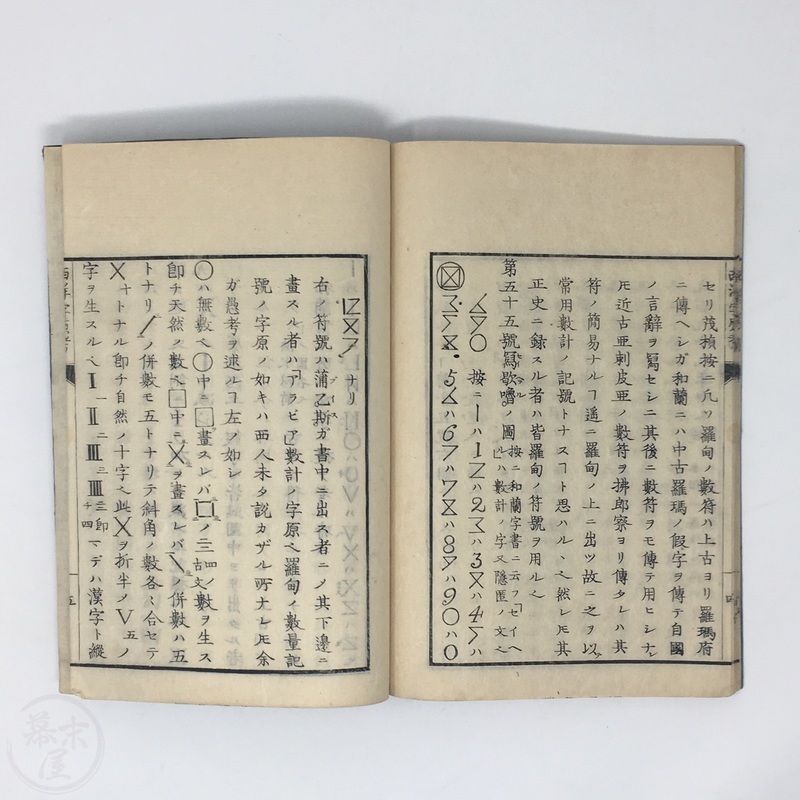 セリ茂禎按ニ凡ソ羅甸ノ數符ハ上古ヨリ羅瑪府
ニ傳ヘシガ和蘭ニハ中古羅瑪ノ假字ヲ傳テ自國
ノ言辭ヲ寫セシニ其後ニ數符ヲモ傳テ用ヒシナレ
𪜈近古亞剌皮亞ノ數符ヲ拂郎察ヨリ傳タレハ其
符ノ簡易ナルヿ遥ニ羅甸ノ上ニ出ツ故ニ之ヲ以
常用數計ノ記號トナスヿト思ハル、ヘ然レ𪜈其
正史ニ録スル者ハ皆羅甸ノ符號ヲ用ルヘ
第五十五號寫歇嚕ノ圖 按ニ和蘭字書ニ云フ「セイヘル」ハ數計ノ字又隱匿ノ文ヘ
按ニ1ハ1 ハ2 ハ3 ハ4 ハ
5 ハ6 ハ7 ハ8 ハ9 ハ0
ナリ
右ノ符號ハ蒲乙斯ガ書中ニ出ス者ニノ其下邊ニ
畫スル者ハ「アラビア」數計ノ字原ヘ羅甸ノ數量記
號ノ字原ノ如キハ西人未タ説カザル所ナレ𪜈余
ガ愚考ヲ述ルヿ左ノ如シ
〇ハ無數ヘ〇中ニ囗畫スレバ囗ノ三四古文數ヲ生ス
即チ天然ノ數ヘ囗中ニ╳ヲ畫スレバ╲ノ併數ハ五
トナリ╱ノ併數モ五トナリテ斜角ノ數各々合セテ
╳十トナル即チ自然ノ十字ヘ此╳ヲ折半ノV五ノ
字ヲ生スルヘI一II二III三IIII三即チ四マデハ漢字ト縱
十五